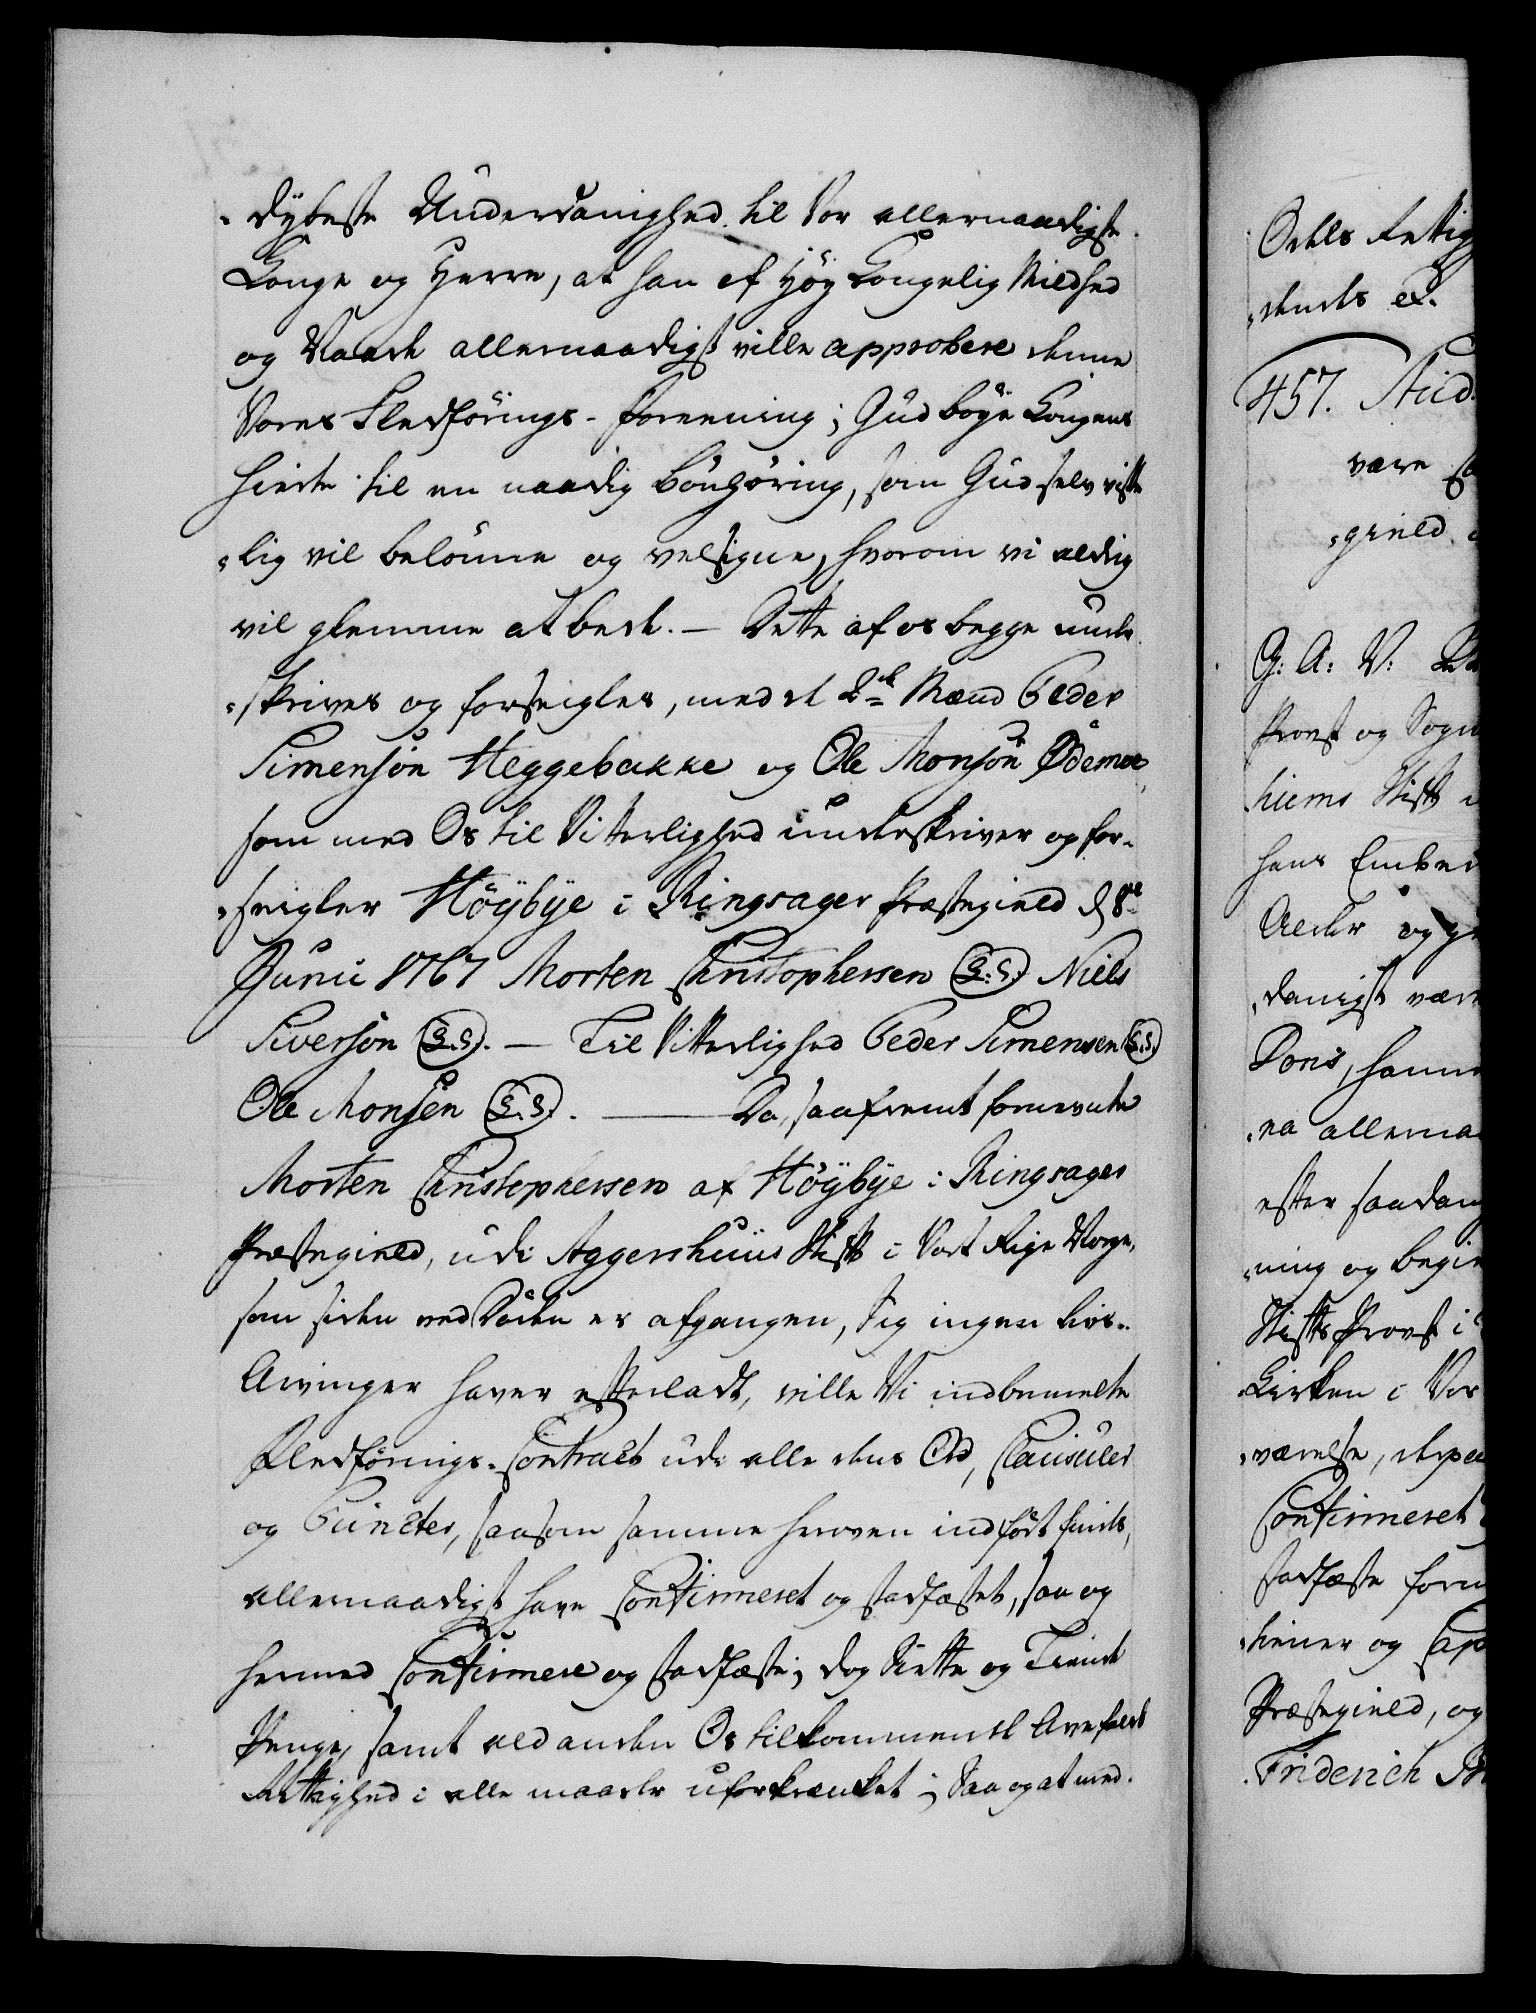 dybeste Underdanighed til Vor allernaadigste
Konge og Herre, at han af Høy Kongelig Mildhed
og Naade allernaadigst ville approbere denne
Vores Fledførings-Foreening; Gud bøye Kongens
Hierte til en naadig bønhøring, som Gud selv visse
lig vil belønne og velsigne, hvorom vi aldrig
vil glemme at bede. – Dette af os begge unde
skrives og forseigles, med de 2de Mænd Peder
Simensøn Heggebakke og Ole Monsøn Ødemoe,
som med Os til Vitterlighed underskriver og for-
seigler Höÿbÿe i Ringsager Præstegield d 8de
Junii 1767 Morten Christophersen (L.S.) Niels
Siversøn (L.S.). – Til Vitterlighed Peder Simensen (L.S.)
Ole Monsen (L.S.). – Da, saafremt fornevnte
Morten Christophersen af Höÿbÿe i Ringsager
Præstegield, udi Aggershuus Stift i Vort Rige Norge,
som siden ved Døden er afgangen, Sig ingen Livs-
Arvinger haver efterladt, ville Vi indbemelte
Fledførings-Contract udi alle dens Ord, Clausuler
og Puncter, saasom samme heroven indført findes,
allernaadigst have Confirmeret og stadfæstet, saa og
hermed Confirmere og stadfæste; dog Siette og Tiende
Penge, samt ald anden Os tilkommende Arvefalds
Rettighed i alle maader uforkrænket; Saa og at med-
Odels Rettig
dendes ex.
457.
være
gield
G: A: V:
Provst og Sogne
hiems Stift
hans Embed
Alder og
danigst være
Poris, hanne
ea allernaa
efter saadan
ning og begie
Stifts Provst i
Kirken i Vor
værelse, derpaa
Confirmeret
stadfæste forn
tiener og Cap
Præstegield, og
Friderich